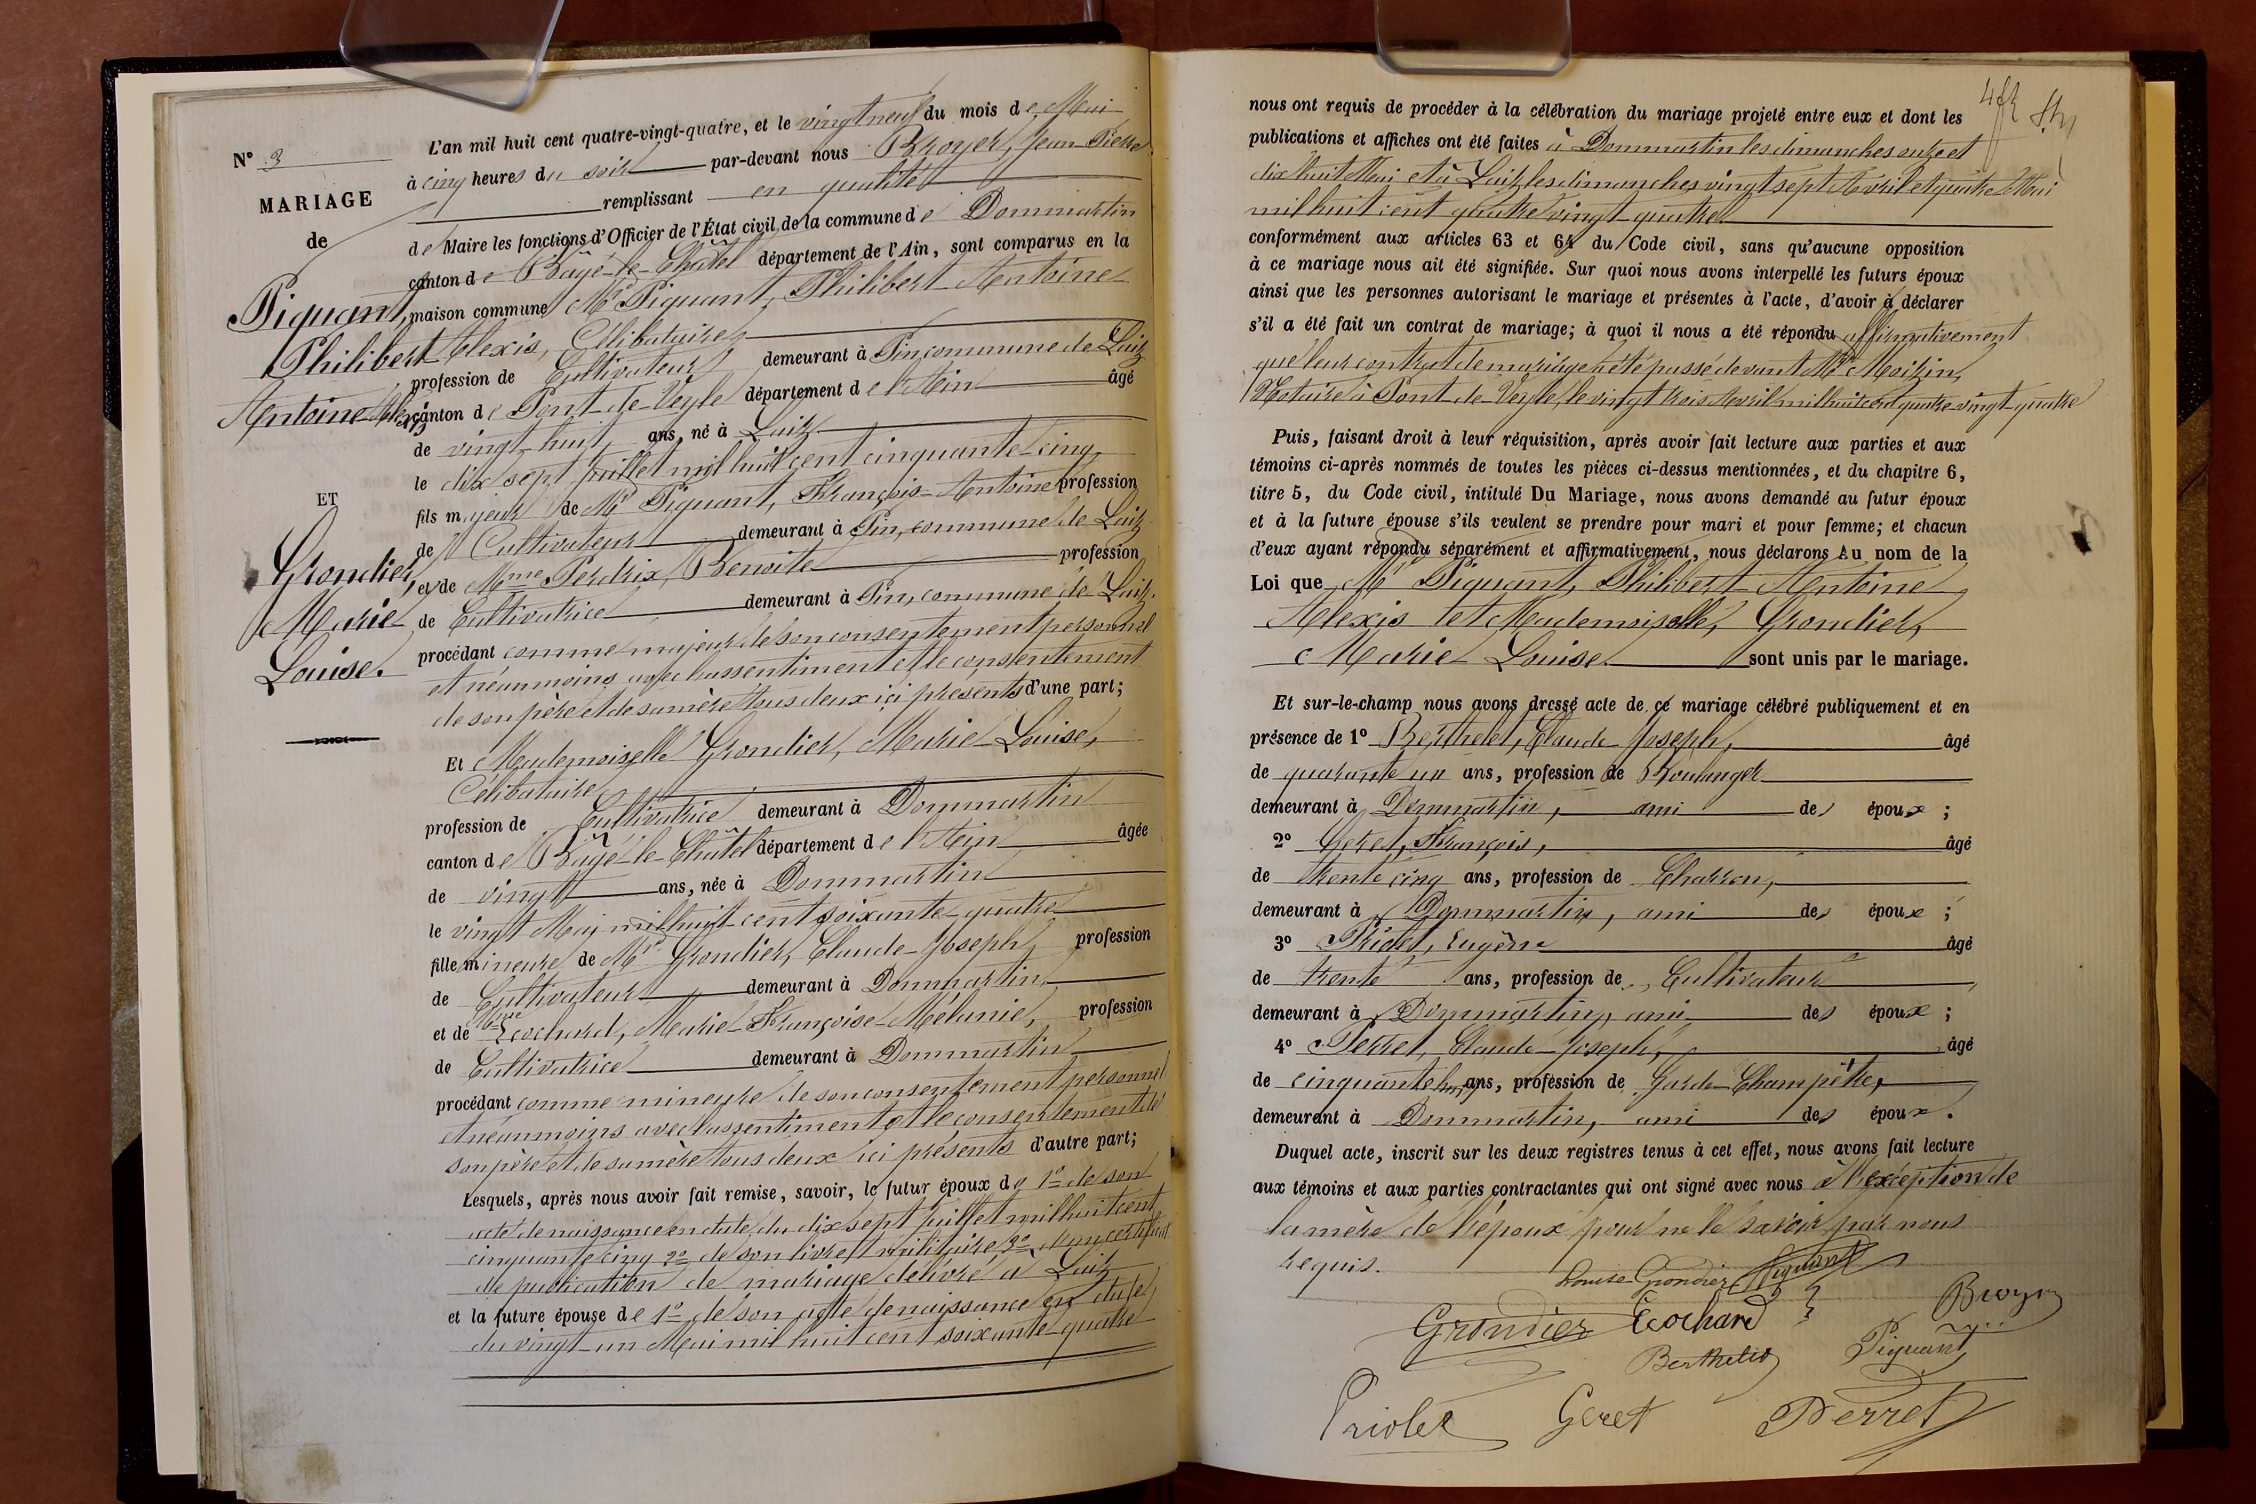 N° 3
MARIAGE
de
Piquant,
Philibert
Antoine Alexis
ET
Grondier,
Marie
Louise.
L'an mil huit cent quatre-vingt-quatre, et le vingt neuf du mois de Mai
à cinq heures du soir par-devant nous Broyer, Jean Pierre
remplissant en qualité
de Maire les fonctions d'Officier de l'État civil de la commune de Dommartin
canton de Bâgé-le-Châtel département de l'Ain, sont comparus en la
maison commune Mr Piquant, Philibert Antoine
Alexis, Célibataire,
profession de Cultivateur demeurant à Pin, commune de Laiz
canton de Pont-de-Veyle département de l'Ain âgé
de vingt-huit ans, né à Laiz
le dix sept juillet mil huit cent cinquante-cinq
fils majeur de Mr Piquant, François-Antoine profession
de Cultivateur demeurant à Pin, commune de Laiz
et de Mme Perdrix, Benoite profession
de Cultivatrice demeurant à Pin, commune de Laiz.
procédant comme majeur de son consentement personnel
et néanmoins avec l'assentiment et le consentement
de son père et de sa mère tous deux ici présents d'une part;
Et Mademoiselle Grondier, Marie-Louise,
Célibataire
profession de Cultivatrice demeurant à Dommartin
canton de Bâgé-le-Châtel département de l'Ain âgée
de vingt ans, née à Dommartin
le vingt Mai mil huit cent soixante-quatre
fille mineure de Mr Grondier, Claude-Joseph, profession
de Cultivateur demeurant à Dommartin,
et de Mme Ecochard, Marie-Françoise-Mélanie, profession
de Cultivatrice demeurant à Dommartin
procédant comme mineure de son consentement personnel
et néanmoins avec l'assentiment et le consentement de
son père et de sa mère tous deux ici présents d'autre part;
Lesquels, après nous avoir fait remise, savoir, le futur époux de 1° de son
acte de naissance en date du dix sept juillet mil huit cent
cinquante cinq 2° de son livret militaire 3° d'un certificat
de publication de mariage délivré à Laiz
et la future épouse de 1° de son acte de naissance en date
du vingt-un Mai mil huit cent soixante-quatre
nous ont requis de procéder à la célébration du mariage projeté entre eux et dont les
publications et affiches ont été faites à Dommartin les dimanches onze et
dix huit Mai et à Laiz les dimanches vingt sept Avril et quatre Mai
mil huit cent quatre vingt quatre
conformément aux articles 63 et 64 du Code civil, sans qu'aucune opposition
à ce mariage nous ait été signifiée. Sur quoi nous avons interpellé les futurs époux
ainsi que les personnes autorisant le mariage et présentes à l'acte, d'avoir à déclarer
s'il a été fait un contrat de mariage; à quoi il nous a été répondu affirmativement
que leur contrat de mariage a été passé devant Me Moizin,
Notaire à Pont-de-Veyle, le vingt trois Avril mil huit cent quatre-vingt-quatre
Puis, faisant droit à leur réquisition, après avoir fait lecture aux parties et aux
témoins ci-après nommés de toutes les pièces ci-dessus mentionnées, et du chapitre 6,
titre 5, du Code civil, intitulé Du Mariage, nous avons demandé au futur époux
et à la future épouse s'ils veulent se prendre pour mari et pour femme; et chacun
d'eux ayant répondu séparément et affirmativement, nous déclarons Au nom de la
Loi que Mr Piquant, Philibert Antoine
Alexis et Mademoiselle, Grondier,
Marie Louise sont unis par le mariage.
Et sur-le-champ nous avons dressé acte de ce mariage célébré publiquement et en
présence de 1° Berthelet, Claude Joseph, âgé
de quarante un ans, profession de Boulanger
demeurant à Dommartin, ami des époux;
2° Geret, François, âgé
de trente cinq ans, profession de Charron,
demeurant à Dommartin, ami des époux;
3° Priolet, Eugène âgé
de trente ans, profession de Cultivateur
demeurant à Dommartin, ami des époux;
4° Perret, Claude-Joseph, âgé
de cinquante ans, profession de Garde-Champêtre,
demeurant à Dommartin, ami des époux.
Duquel acte, inscrit sur les deux registres tenus à cet effet, nous avons fait lecture
aux témoins et aux parties contractantes qui ont signé avec nous à l'exception de
la mère de l'époux pour ne le savoir par nous
requis.
Louise Grondier Piquant
Grondier Ecochard Broyer
Berthelet Piquant
Priolet Geret Perret